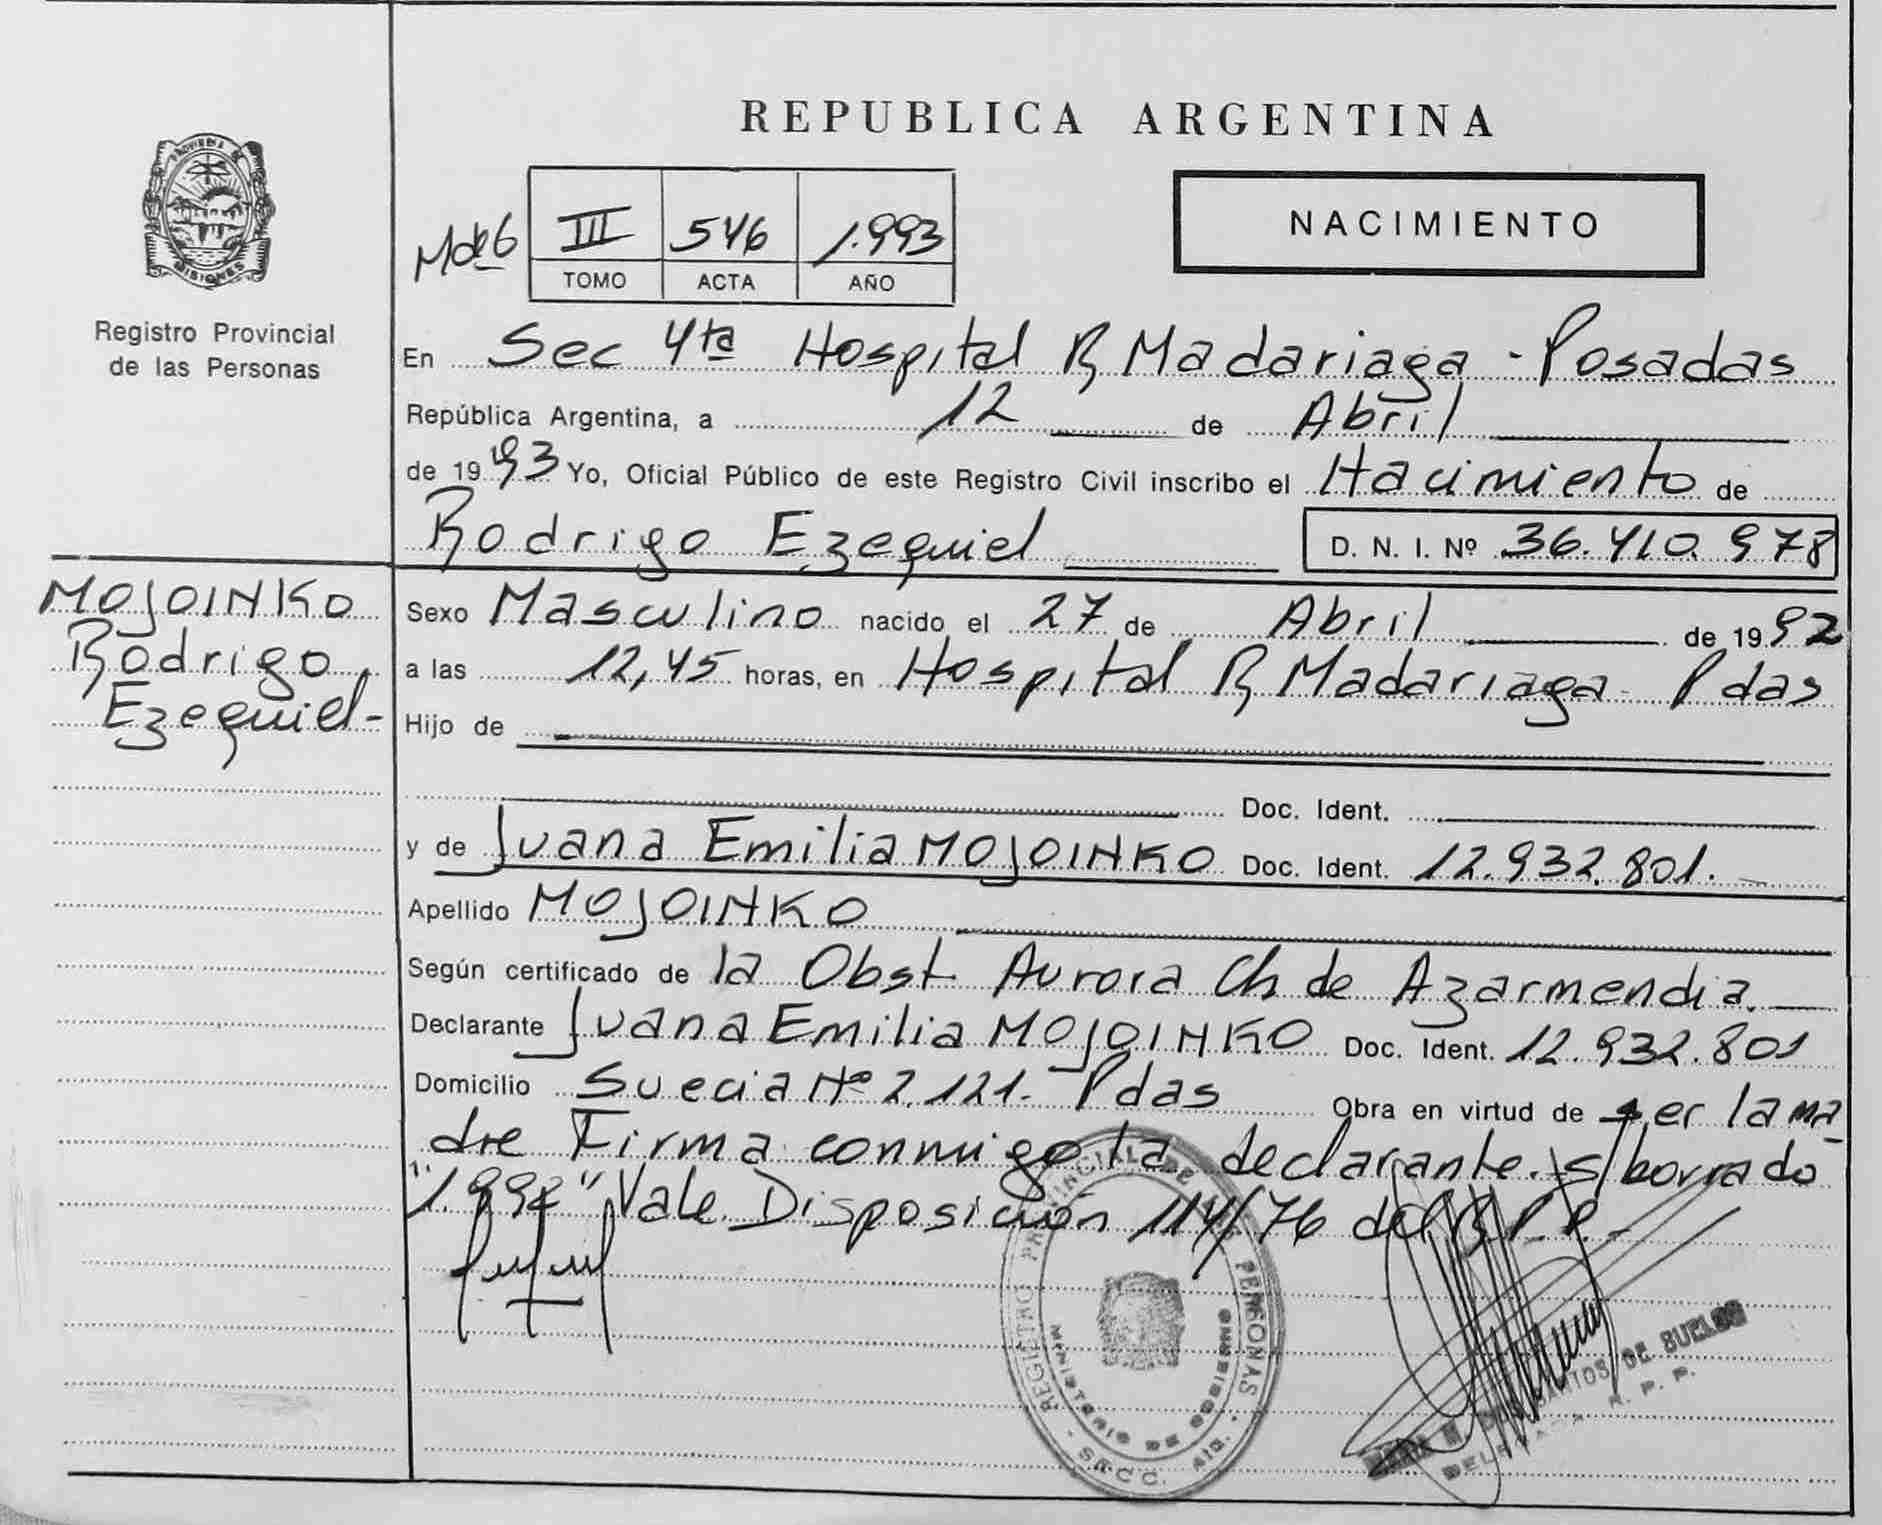 REPUBLICA ARGENTINA
PROVINCIA DE
MISIONES
Registro Provincial
de las Personas
III 546 1.993
TOMO ACTA AÑO
NACIMIENTO
En Sec 4ta Hospital R Madariaga - Posadas
República Argentina, a 12 de Abril
de 1993 Yo, Oficial Público de este Registro Civil inscribo el Nacimiento de
Rodrigo Ezequiel D. N. I. Nº 36.410.978
MOJOINKO
Rodrigo
Ezequiel-
Sexo Masculino nacido el 27 de Abril de 1992
a las 12,45 horas, en Hospital R Madariaga - Pdas
Hijo de
Doc. Ident.
y de Juana Emilia MOJOINKO Doc. Ident. 12.932.801.
Apellido MOJOINKO
Según certificado de la Obst Aurora Ch de Azarmendia.
Declarante Juana Emilia MOJOINKO Doc. Ident. 12.932.801
Domicilio Suecia Nº 2.121- Pdas Obra en virtud de ser la ma
dre Firma conmigo la declarante. s/borrado
"1.992" Vale. Disposición 114/76 del R.P.P.-
REGISTRO PROVINCIAL DE PERSONAS
MINISTERIO DE GOBIERNO
SANTOS DE BUELOS
R. P. P.